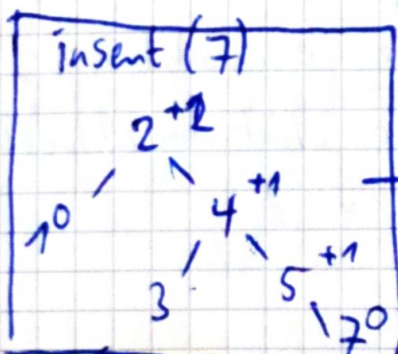 insert (7)
2 +2
1 0
4 +1
3
5 +1
7 0